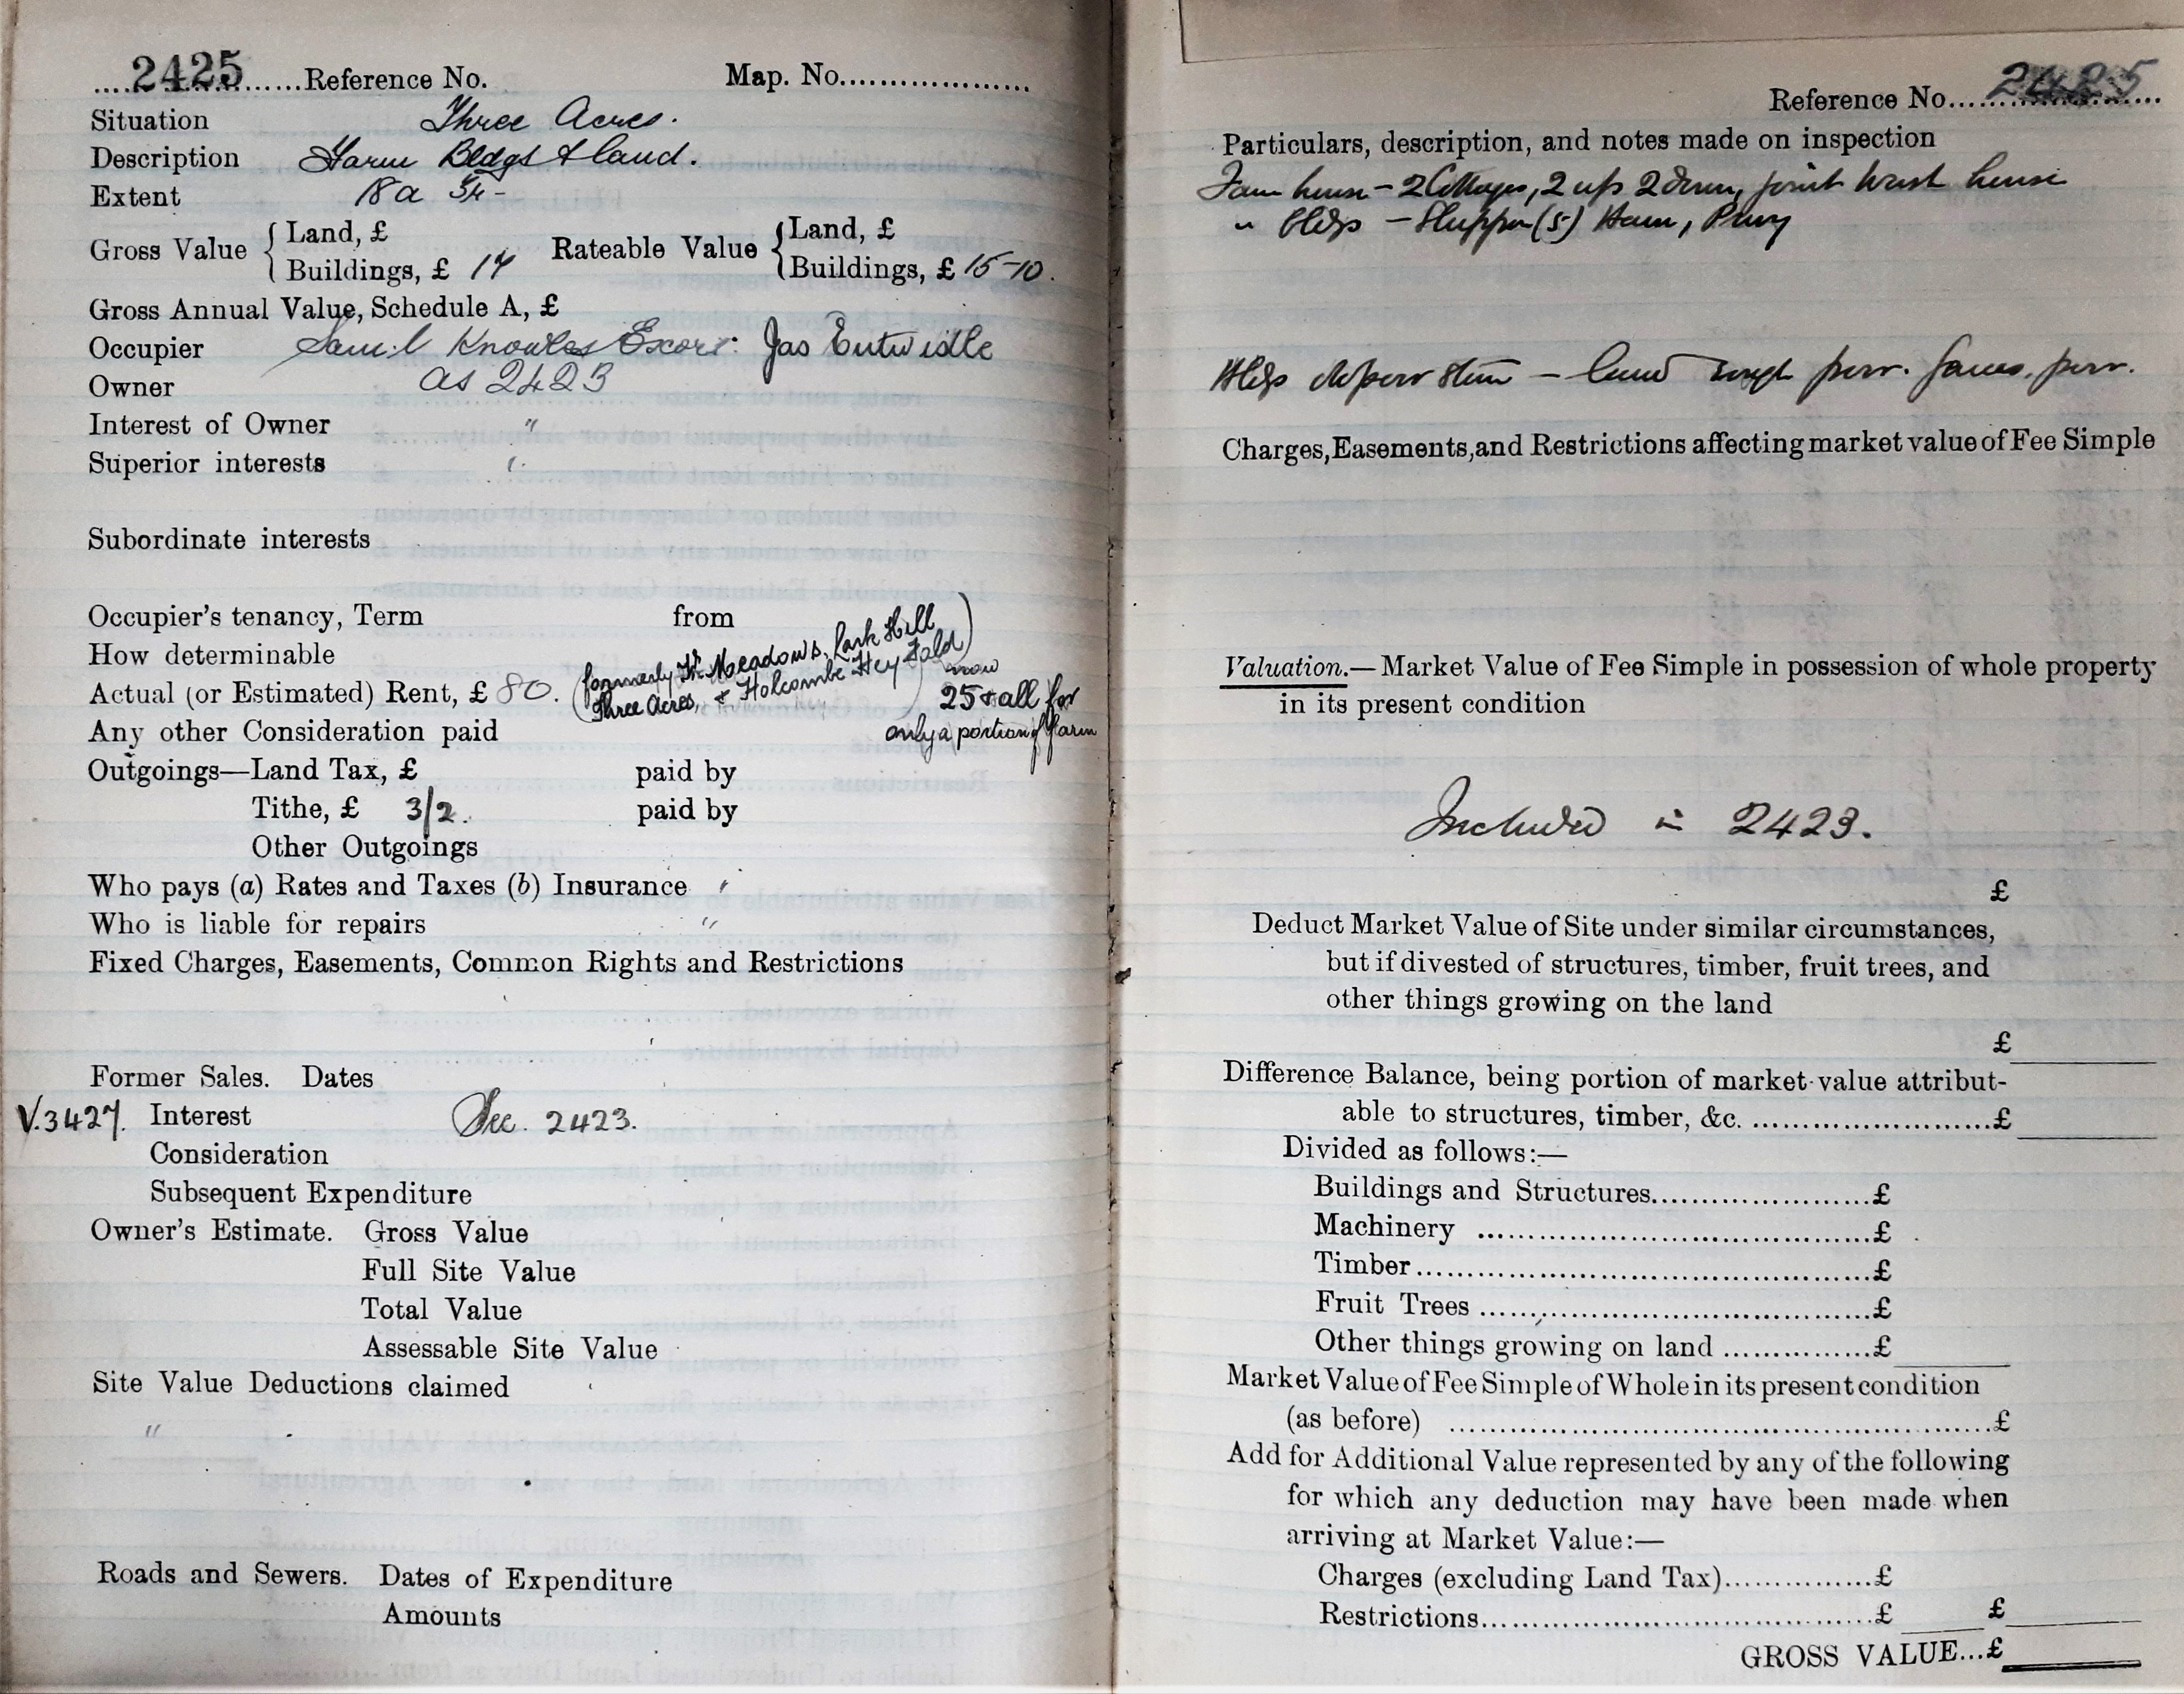 2425 Reference No. Map. No.
Situation Three Acres.
Description Farm Bldgs & land.
Extent 18a 3r -
Gross Value { Land, £ Rateable Value { Land, £
Buildings, £ 17 Buildings, £ 15-10.
Gross Annual Value, Schedule A, £
Occupier Saml Knowles Exors: Jas Entwistle
Owner as 2423
Interest of Owner "
Superior interests "
Subordinate interests
Occupier's tenancy, Term from
How determinable
Actual (or Estimated) Rent, £ 80. (formerly Meadows, Lark Hill
Three Acres, & Holcombe Hey Fold) now
25 & all for
only a portion of farm
Any other Consideration paid
Outgoings—Land Tax, £ paid by
Tithe, £ 3/2. paid by
Other Outgoings
Who pays (a) Rates and Taxes (b) Insurance "
Who is liable for repairs "
Fixed Charges, Easements, Common Rights and Restrictions
Former Sales. Dates
V.3427. Interest See. 2423.
Consideration
Subsequent Expenditure
Owner's Estimate. Gross Value
Full Site Value
Total Value
Assessable Site Value
Site Value Deductions claimed
"
Roads and Sewers. Dates of Expenditure
Amounts
Reference No. 2425
Particulars, description, and notes made on inspection
Farm house - 2 Cottages, 2 up 2 down, joint Wash house
" Bldgs - Shippon (5) Barn, Privy
Bldgs stone - land rough poor. fences, poor.
Charges, Easements, and Restrictions affecting market value of Fee Simple
Valuation.—Market Value of Fee Simple in possession of whole property
in its present condition
Included in 2423.
£
Deduct Market Value of Site under similar circumstances,
but if divested of structures, timber, fruit trees, and
other things growing on the land
£
Difference Balance, being portion of market value attribut-
able to structures, timber, &c. £
Divided as follows:—
Buildings and Structures £
Machinery £
Timber £
Fruit Trees £
Other things growing on land £
Market Value of Fee Simple of Whole in its present condition
(as before) £
Add for Additional Value represented by any of the following
for which any deduction may have been made when
arriving at Market Value:—
Charges (excluding Land Tax) £
Restrictions £ £
GROSS VALUE...£